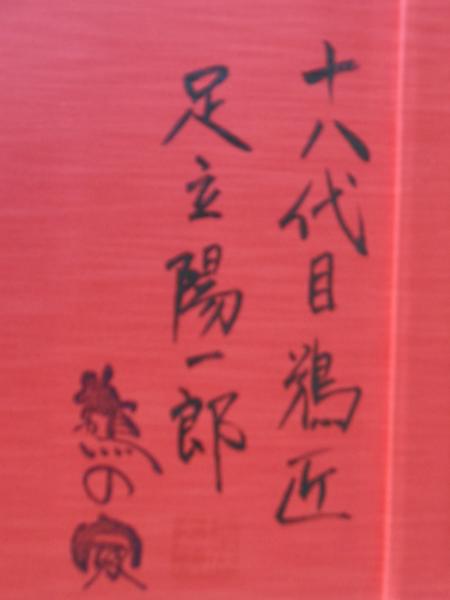 十八代目鵜匠
足立陽一郎
鵜の家